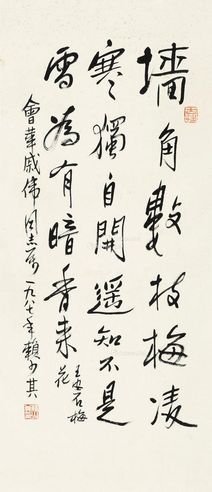 墻角數枝梅凌
寒獨自開遥知不是
雪為有暗香来
王安石梅
花
會華戚偉同志属一九八七年賴少其